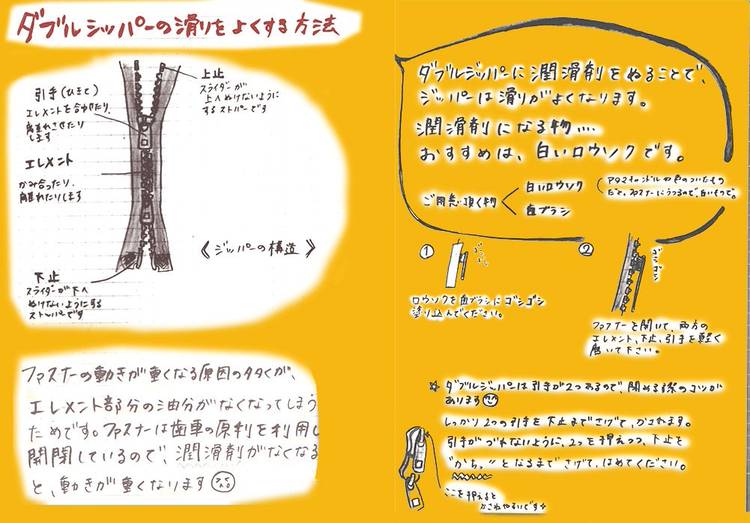 ダブルジッパーの滑りをよくする方法
引手(ひきて)
エレメントを合わせたり、
離れさせたり
します
上止
スライダーが
上へぬけないように
するストパーです
エレメント
かみ合ったり、
離れたりします
《ジッパーの構造》
下止
スライダーが下へ
ぬけないようにする
ストパーです
ファスナーの動きが重くなる原因の多くが、
エレメント部分の油分がなくなってしまう
ためです。ファスナーは歯車の原利を利用し
開閉しているので、潤滑剤がなくなる
と、動きが重くなります
ダブルジッパーに潤滑剤をぬることで、
ジッパーは滑りがよくなります。
潤滑剤になる物....
おすすめは、白いロウソクです。
ご用意頂く物
白いロウソク
歯ブラシ
アロマキャンドルや色のついたもの
だと、ファスナーにうつるので、白いもので。
①
ロウソクを歯ブラシにゴシゴシ
塗り込んでください。
②
ゴシゴシ
ファスナーを開いて、両方の
エレメント、下止、引手を軽く
磨いて下さい。
☆ダブルジッパーは引手が2つあるので、閉める際のコツが
あります
しっかり2つの引手を下止までさげて、かさねます。
引手がづれないように、2つを押えつつ、下止を
"かちっ"となるまでさげて、はめてください。
ここを押えると
かさねやすいです☆